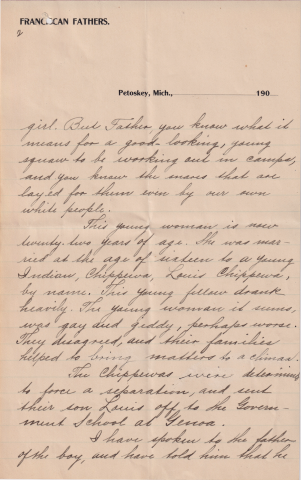 FRANCISCAN FATHERS.
2
Petoskey, Mich., 190
girl. But Father, you know what it
means for a good-looking, young
squaw to be woorking out in camps,
and you know the snares that are
layed for them even by our own
white people.
This young woman is now
twenty-two years of age. She was mar-
ried at the age of sixteen to a young
Indian, Chippewa, Louis Chippewa,
by name. This young fellow drank
heavily. The young woman it seems,
was gay and giddy, perhaps worse.
They disagreed, and their families
helped to bring matters to a climax.
The Chippewas were determined
to force a separation, and sent
their son Louis off, to the Govern-
ment School at Genoa.
I have spoken to the father
of the boy, and have told him that he